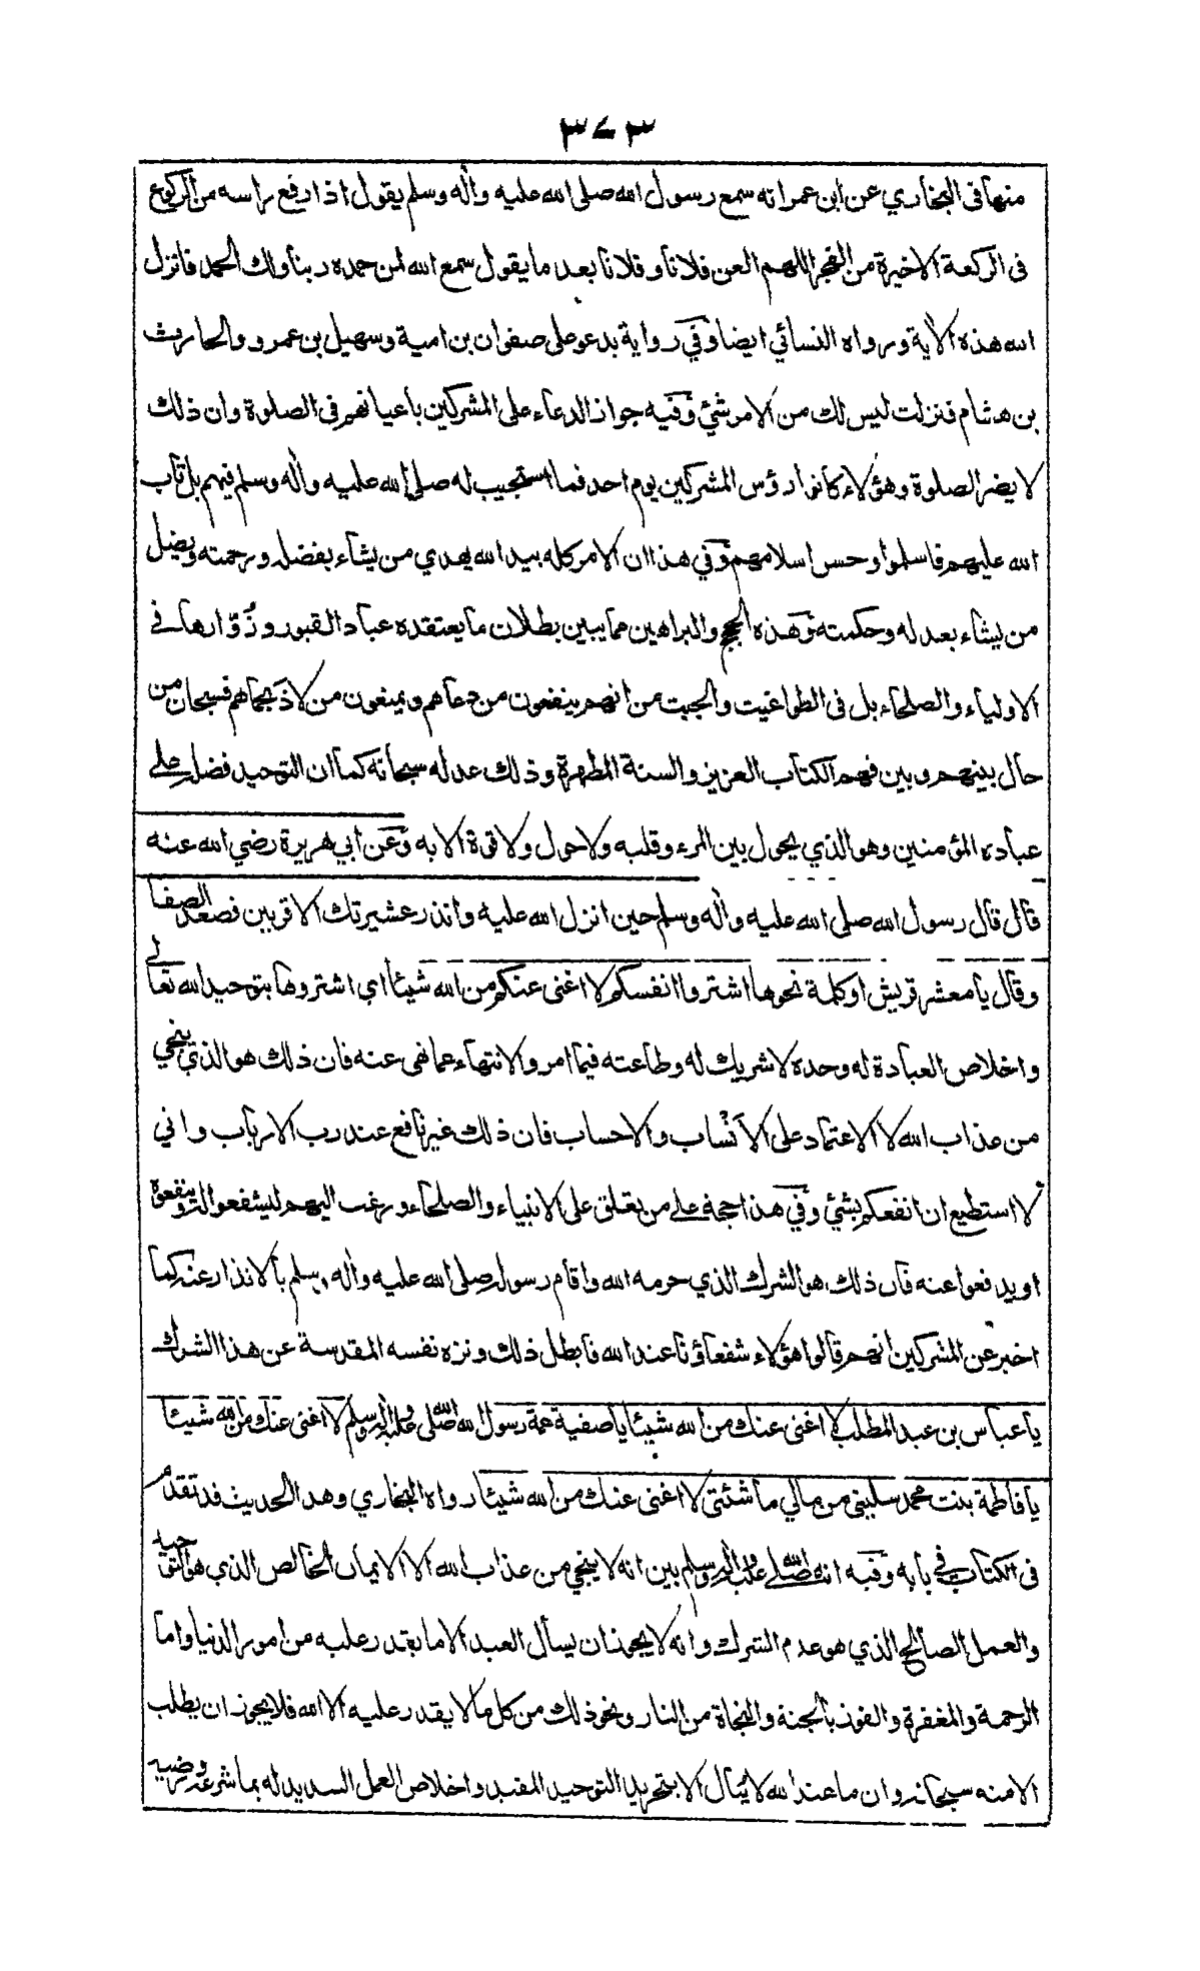 ٣٧٣
منها في البخاري عن ابن عمر انه سمع رسول الله صلى الله عليه واٰله وسلم يقول اذا رفع راسه من الركوع
فى الركعة الاخيرة من الفجر اللهم العن فلانا وفلانا بعد ما يقول سمع الله لمن حمده ربنا ولك الحمد فانزل
الله هذه الاٰية ورواه النسائي ايضا وفي رواية يدعو على صفوان بن امية وسهيل بن عمرو والحارث
بن هشام فنزلت ليس لك من الامر شئ وفيه جواز الدعاء على المشركين باعيانهم فى الصلوة وان ذلك
لا يضر الصلوة وهؤلاء كانوا رؤس المشركين يوم احد فما استجيب له صلى الله عليه واٰله وسلم فيهم بل تاب
الله عليهم فاسلموا وحسن اسلامهم وفي هذا ان الامر كله بيد الله يهدي من يشاء بفضله ورحمته ويضل
من يشاء بعدله وحكمته وهذه الحجج والبراهين مما يبين بطلان ما يعتقده عباد القبور وزُوّارها في
الاولياء والصلحاء بل فى الطواغيت والجبت من انهم ينفعون من دعاهم ويمنعون من لاذ بحماهم فسبحان من
حال بينهم وبين فهم الكتاب العزيز والسنة المطهرة وذلك عدله سبحانه كما ان التوحيد فضله على
عباده المؤمنين وهو الذي يحول بين المرء وقلبه ولا حول ولا قوة الا به وعن ابي هريرة رضي الله عنه
قال قال رسول الله صلى الله عليه واٰله وسلم حين انزل الله عليه وانذر عشيرتك الاقربين فصعد الصفا
وقال يا معشر قريش او كلمة نحوها اشتروا انفسكم لا اغنى عنكم من الله شيئا اي اشتروها بتوحيد الله تعالى
واخلاص العبادة له وحده لا شريك له وطاعته فيما امر والانتهاء عما نهى عنه فان ذلك هو الذي ينجي
من عذاب الله لا الاعتماد على الانساب والاحساب فان ذلك غير نافع عند رب الارباب واني
لا استطيع ان انفعكم بشئ وفي هذا حجة على من تعلق على الانبياء والصلحاء ورغب اليهم ليشفعوا له وينفعوه
او يدفعوا عنه فان ذلك هو الشرك الذي حرمه الله واقام رسوله صلى الله عليه واٰله وسلم بالانذار عنه كما
اخبر عن المشركين انهم قالوا هؤلاء شفعاؤنا عند الله فابطل ذلك ونزه نفسه المقدسة عن هذا الشرك
يا عباس بن عبد المطلب لا اغنى عنك من الله شيئا يا صفية عمة رسول الله صلى الله عليه واٰله وسلم لا اغنى عنك من الله شيئا
يا فاطمة بنت محمد سليني من مالي ما شئتى لا اغنى عنك من الله شيئا رواه البخاري وهذا الحديث قد تقدم
فى الكتاب في بابه وفيه انه صلى الله عليه واٰله وسلم بين انه لا ينجي من عذاب الله الا الايمان الخالص الذي هو التوحيد
والعمل الصالح الذي هو عدم الشرك وانه لا يجوز ان يسأل العبد الا ما يقدر عليه من امور الدنيا واما
الرحمة والمغفرة والفوز بالجنة والنجاة من النار ونحو ذلك من كل ما لا يقدر عليه الا الله فلا يجوز ان يطلب
الا منه سبحانه وان ما عند الله لا يُنال الا بتجريد التوحيد المفيد واخلاص العمل السديد له بما شرعه ورضيه